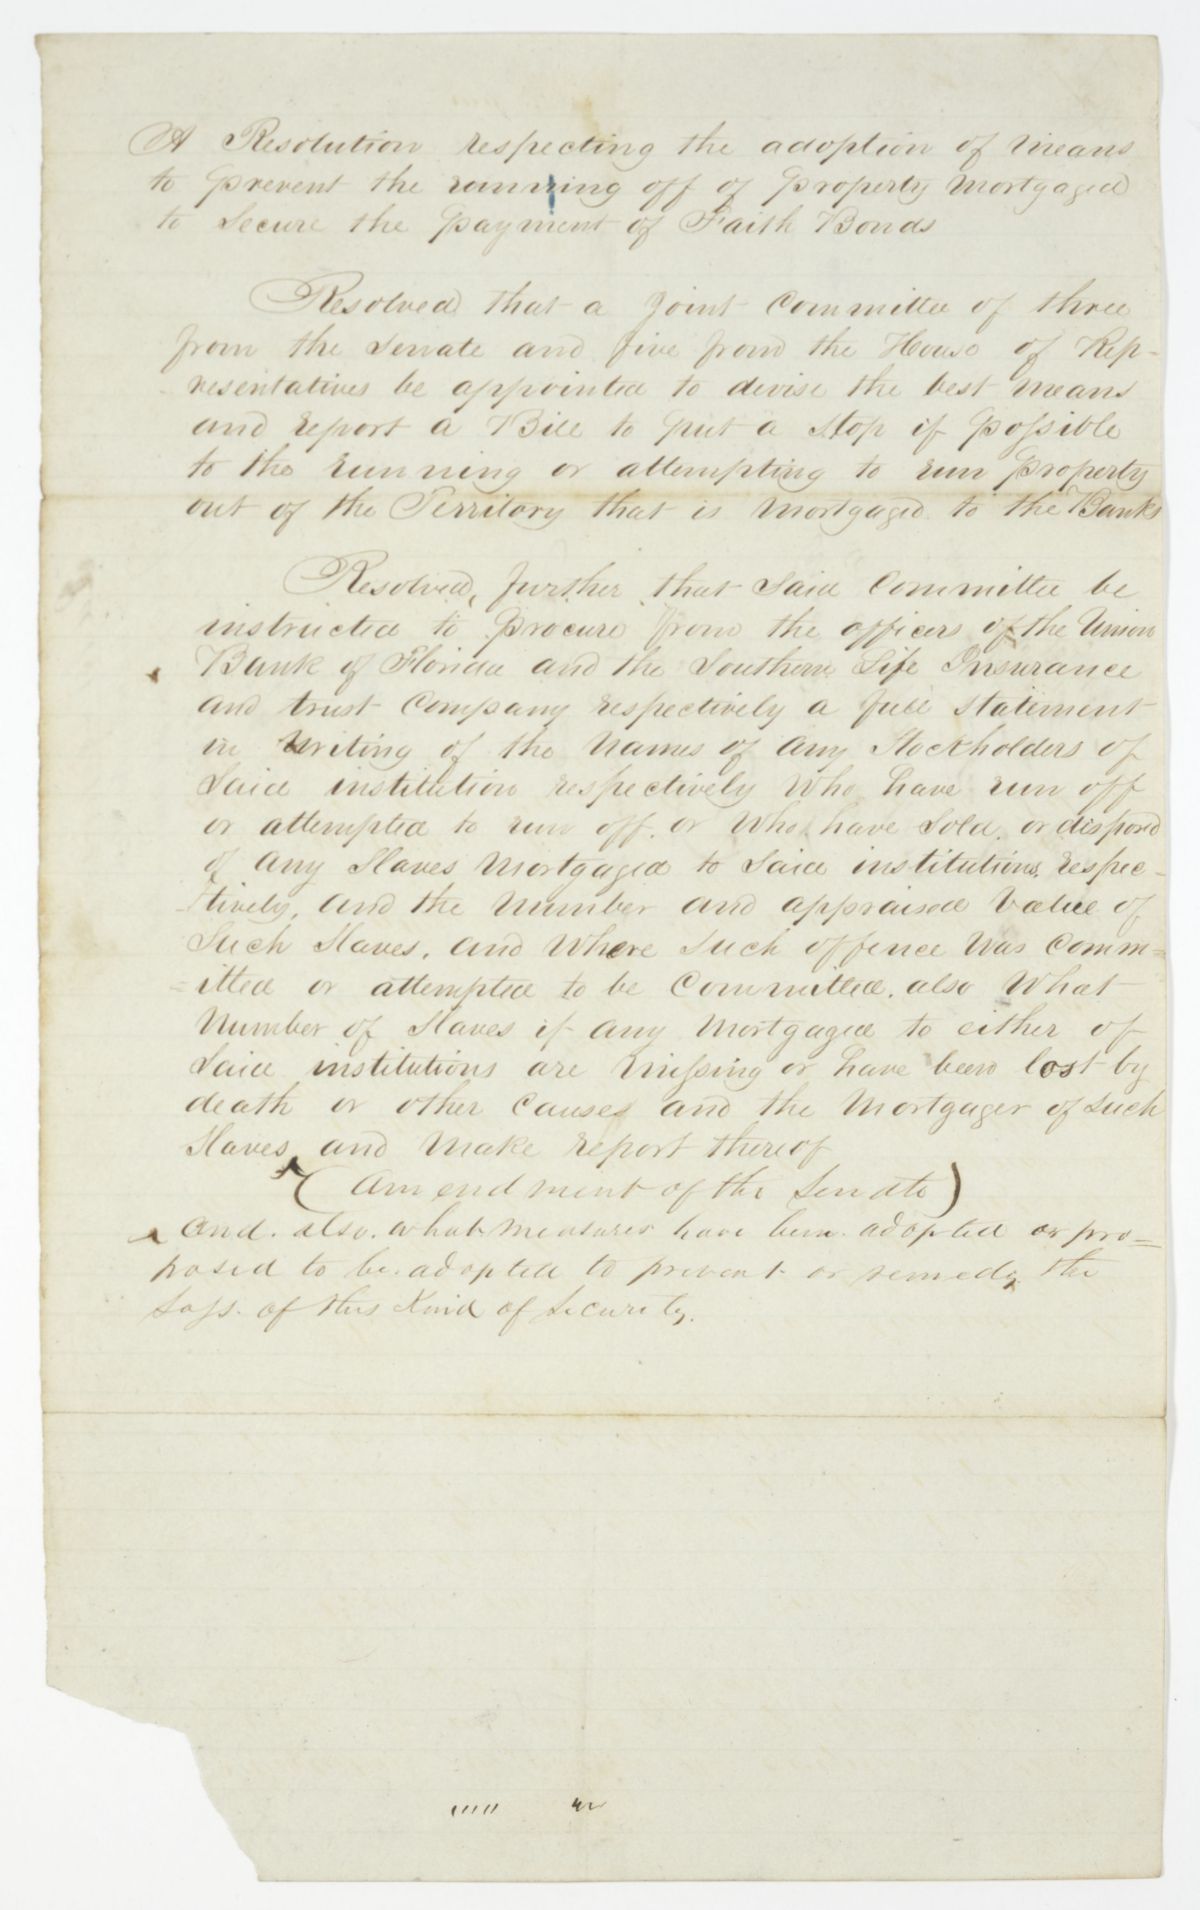 A Resolution respecting the adoption of means
to prevent the running off of property Mortgaged
to Secure the payment of Faith Bonds
Resolved that a joint Committee of three
from the Senate and five from the House of Rep-
resentatives be appointed to devise the best means
and report a Bill to put a Stop if possible
to the running or attempting to run property
out of the Territory that is Mortgaged to the Banks
Resolved, further that Said Committee be
instructed to procure from the officers of the Union
Bank of Florida and the Southern Life Insurance
and trust Company respectively a full Statement
in Writing of the Names of any Stockholders of
Said institution respectively Who have run off
or attempted to run off. or Who have Sold. or disposed
of any Slaves Mortgaged to Said institutions respec-
-tively, and the Number and appraised Value of
Such Slaves, and Where Such offence Was Comm=
=itted or attempted to be Committed. also What
Number of Slaves if any Mortgaged to either of
Said institutions are Missing or have been lost by
death or other Causes and the Mortgager of Such
Slaves ^ and Make report thereof
(Amendment of the Senate)
^ and. also. what measures have been adopted or pro=
posed to be adopted to prevent or remedy the
Loss. of this Kind of Security.